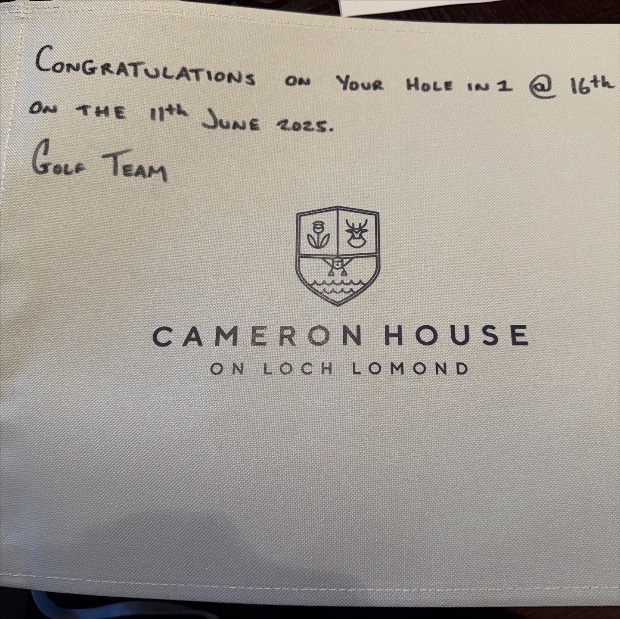 CONGRATULATIONS ON YOUR HOLE IN 1 @ 16th
ON THE 11th JUNE 2025.
GOLF TEAM
CAMERON HOUSE
ON LOCH LOMOND